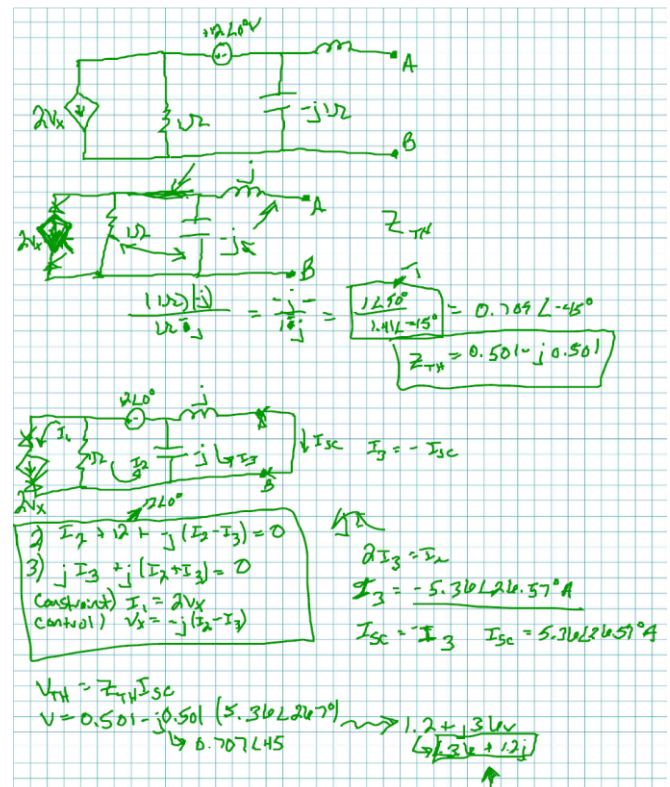 12∠0°V
A
2Vx
1Ω
-j1Ω
B
j
A
2Vx
1Ω
-jπ
B
Z TH
(1Ω)(-j) / 1Ω - j = -j / 1-j = 1∠90° / 1.41∠-45° = 0.709∠-45°
Z TH = 0.501 - j0.501
12∠0°
j
I1
1Ω
I2
-j
I3
B
2Vx
↓ Isc
I3 = - Isc
12∠0°
2) I2 + 12 + -j(I2-I3) = 0
3) jI3 + j(I2+I3) = 0
constraint) I1 = 2Vx
control) Vx = -j(I2-I3)
2I3 = I2
I3 = -5.36∠26.57°A
Isc = -I3 Isc = 5.36∠26.57°A
VTH = ZTH Isc
V = 0.501 - j0.501 (5.36∠26.7°)
↳ 0.707∠45
1.2 + j36v
↳ 3.6 + 1.2j